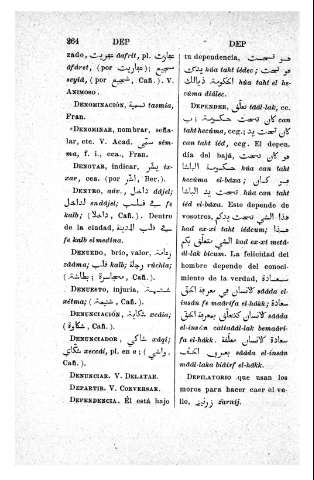 264 DEP
DEP
zado, عفريت âafrit, pl. عفاريت
âfâret, (por عفاريت); سجيع
seyiâ, (por شجيع, Cañ.). V.
ANIMOSO.
DENOMINACIÓN, تسمية tasmia,
Fran.
«DENOMINAR, nombrar, seña-
lar, etc. V. Acad. سمّى sém-
ma, f. i., cea., Fran.
DENOTAR, indicar, يشر ix-
xar, cea. (por اشر, Ber.).
DENTRO, adv., داجل dájel;
لداجل andájel; فى قلب fe
kalb; (داخلا, Cañ.). Dentro
de la ciudad, فى قلب المدينة
fe kalb elmedina.
DENUEDO, brio, valor, زدامة
zdáma; قلب kalb; رجلة rúchla
(مجاصرة, Cañ.); بطاشة).
DENUESTO, injuria, شتيمة
xétma; (شتيمة, Cañ.).
DENUNCIACIÓN, شكاية xedia;
(شكاوة, Cañ.).
DENUNCIADOR, شاكي xáqi;
شكّاي xecadí, pl. en a; (واشي,
Cañ.).
DENUNCIAR. V. DELATAR.
DEPARTIR. V. CONVERSAR.
DEPENDENCIA. Él está bajo
tu dependencia, هو تحت
يدك húa taht iédec; هو تحت
الحكومة ديالك húa taht el he-
cáma diálec.
DEPENDER, تعلّق táâl-lak, cc.
ب; كان تحت حكومة can
taht hecúma, ccg.; كان تحت يد
can taht ied, ccg. El depen-
día del bajá, هو كان تحت
حكومة الباشا húa can taht
hecúma el-báxa; هو كان
تحت يد الباشا húa can taht
iéd el-báxa. Este depende de
vosotros, هذا الشي تحت يدكم
had ex-xi taht iédcum; هذا
الشي متعلّق بكم had ex-xi metâ-
âl-lak bicum. La felicidad del
hombre depende del conoci-
miento de la verdad, سعادة
الانسان فى معرفة الحق sâáda el-
insán fe maârifa el-hákk; سعادة
الانسان كتتعلّق بمعرفة الحق sâáda
el-insán catitâál-lak bemaâri-
fa el-hákk. سعادة الانسان معلّقة
بعرف الحق sâáda el-insán
muâál-laka biâirf el-hákk.
DEPILATORIO que usan los
moros para hacer caer el ve-
llo, زرنيخ żarnij.